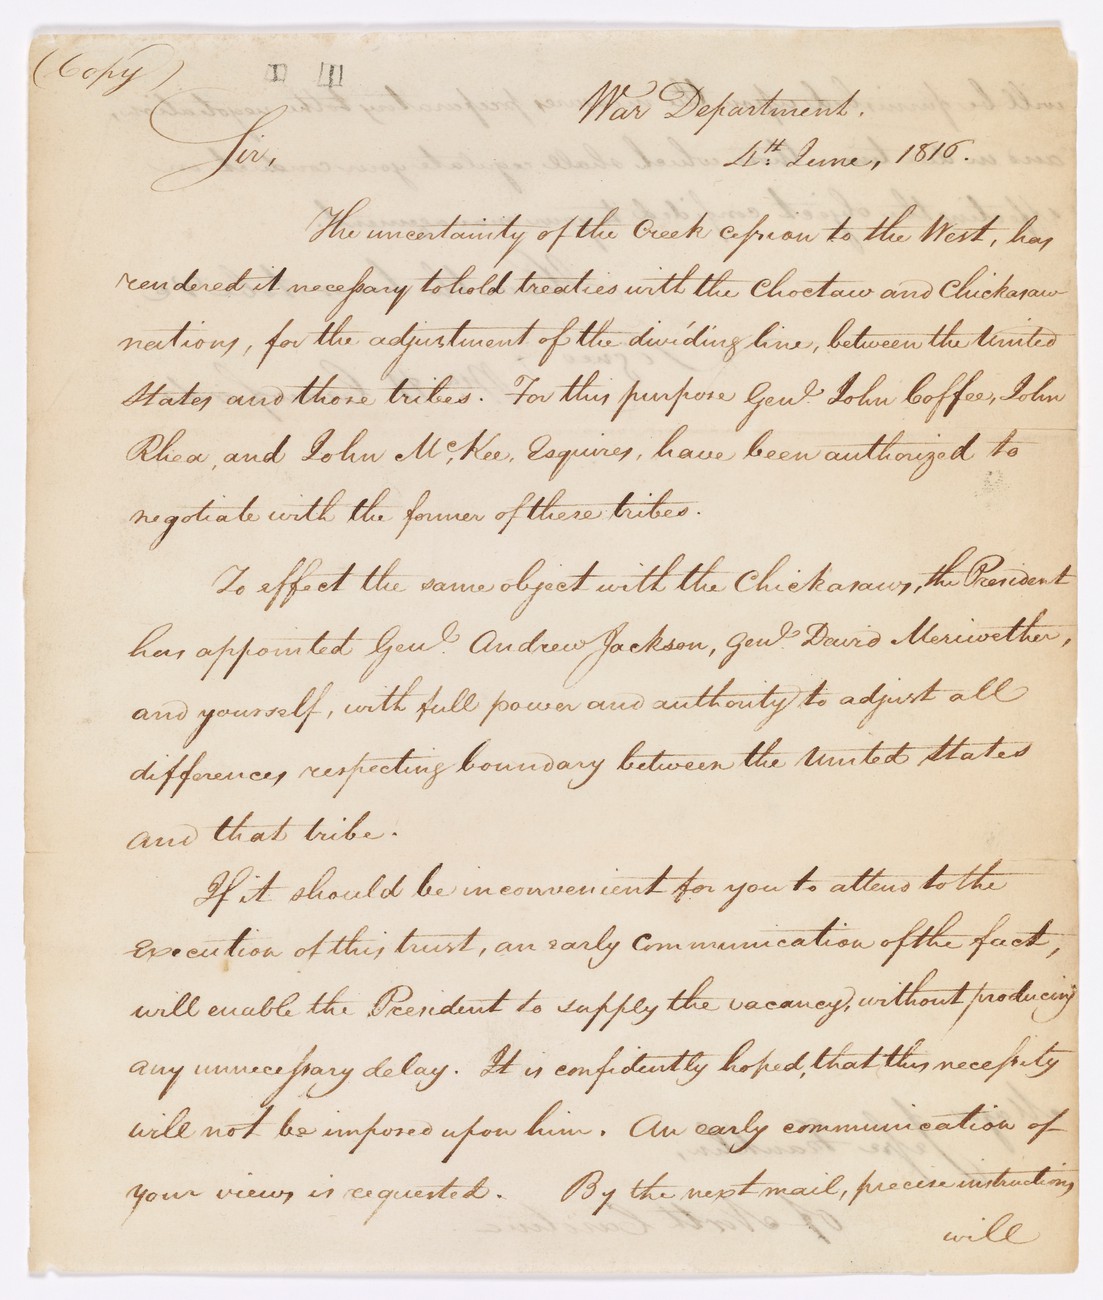 (Copy)
I II
War Department.
4th June, 1816.
Sir,
The uncertainty of the Creek cession to the West, has
rendered it necessary to hold treaties with the Choctaw and Chickasaw
nations, for the adjustment of the dividing line, between the United
States and those tribes. For this purpose Genl. John Coffee, John
Rhea, and John McKee, Esquires, have been authorized to
negotiate with the former of these tribes.
To effect the same object with the Chickasaws, the President
has appointed Genl. Andrew Jackson, Genl. David Meriwether,
and yourself, with full power and authority to adjust all
differences respecting boundary between the United States
and that tribe.
If it should be inconvenient for you to attend to the
Execution of this trust, an early communication of the fact,
will enable the President to supply the vacancy, without producing
any unnecessary delay. It is confidently hoped, that this necessity
will not be imposed upon him. An early communication of
your views is requested. By the next mail, precise instructions
will